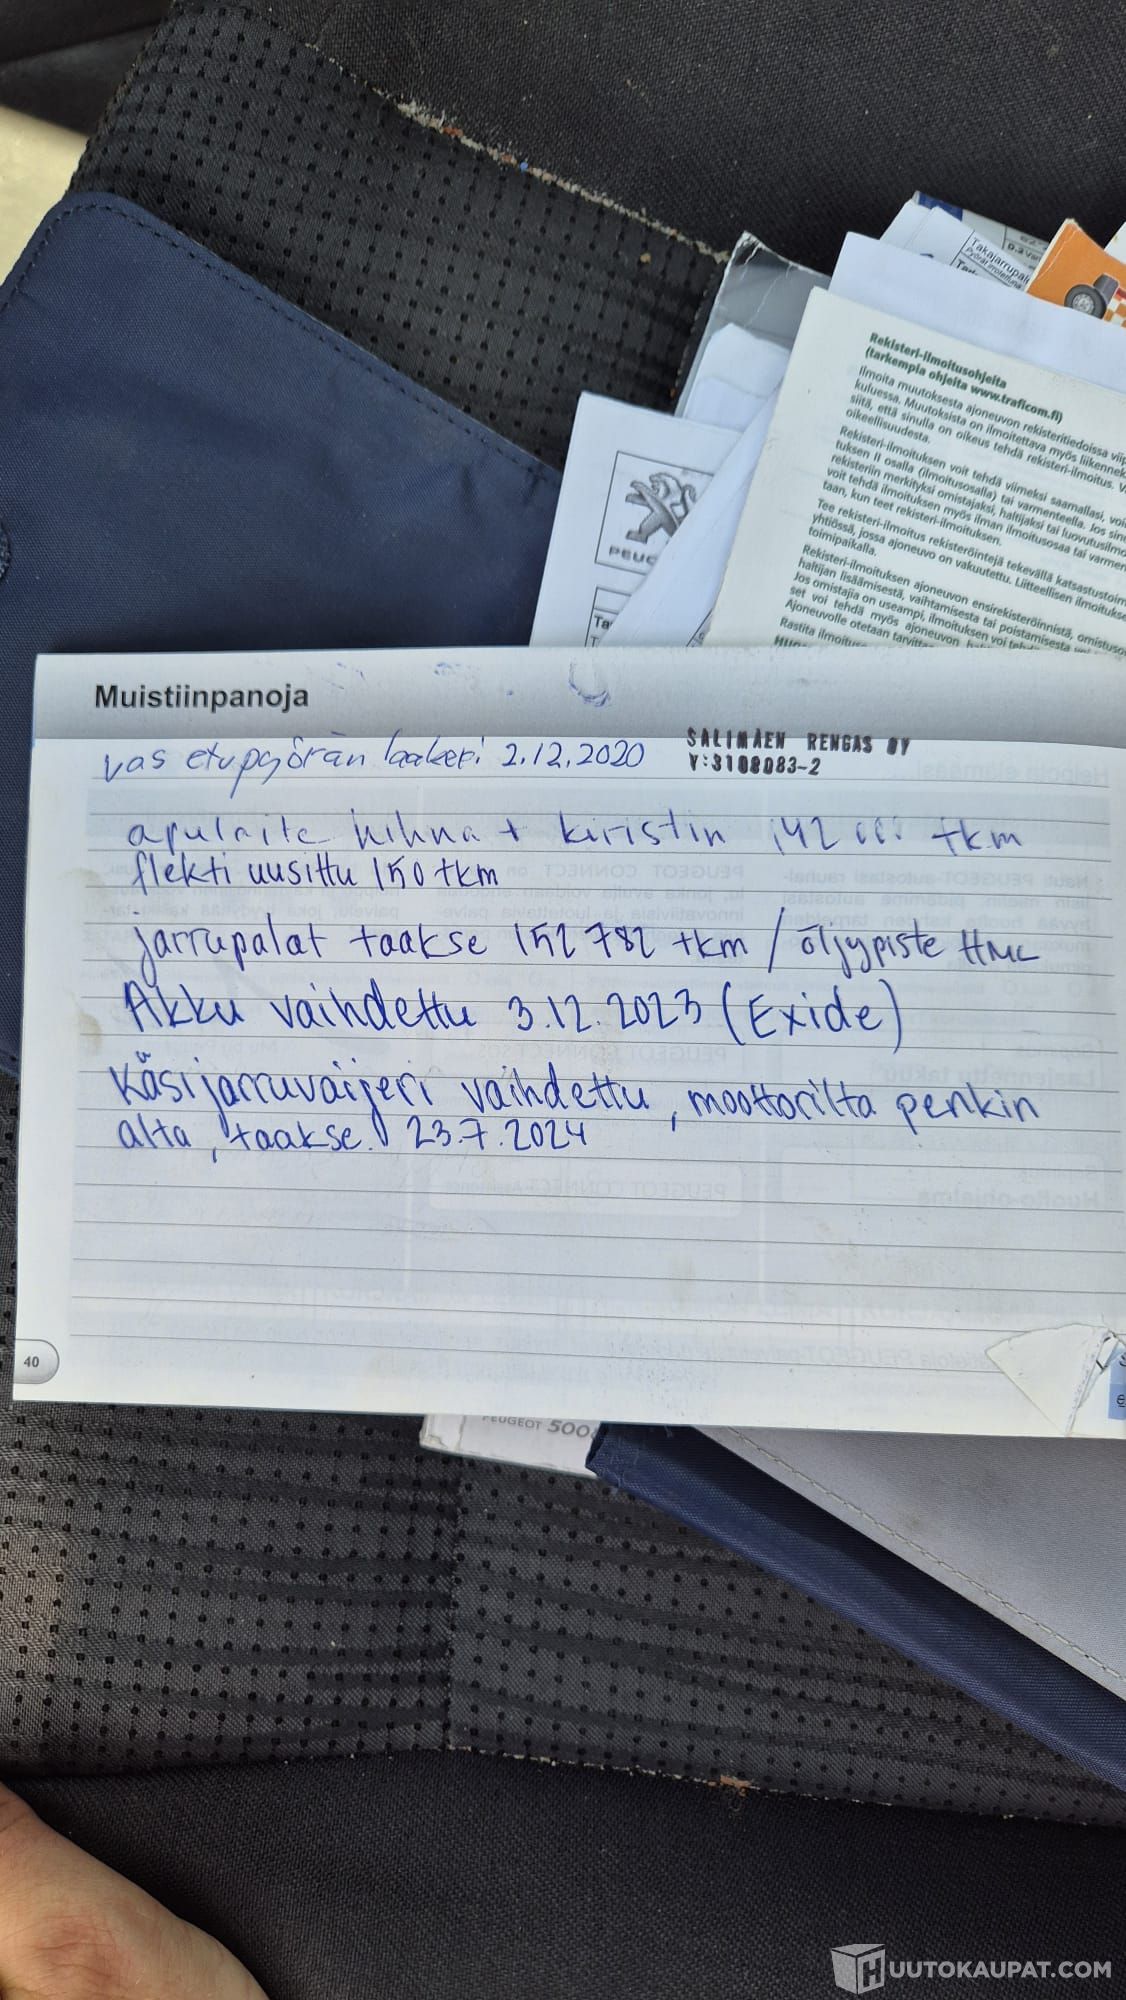 Takajarrupalat
Pyörät irroitettuna
Rekisteri-ilmoitusohjeita
(tarkempia ohjeita www.traficom.fi)
Ilmoita muutoksesta ajoneuvon rekisteritiedoissa
kuluessa. Muutoksista on ilmoitettava myös
siitä, että sinulla on oikeus tehdä rekisteri-ilmoitus.
oikeellisuudesta.
Rekisteri-ilmoituksen voit tehdä viimeksi saamallasi,
tuksen II osalla (ilmoitusosalla) tai varmenteella. Jos
rekisteriin merkityksi omistajaksi, haltijaksi tai
voit tehdä ilmoituksen myös ilman ilmoitusosaa tai
taan, kun teet rekisteri-ilmoituksen.
Tee rekisteri-ilmoitus rekisteröintejä tekevällä
yhtiössä, jossa ajoneuvo on vakuutettu. Liitteellisen
toimipaikalla.
Rekisteri-ilmoituksen ajoneuvon ensirekisteröinnistä,
haltijan lisäämisestä, vaihtamisesta tai poistamisesta
Jos omistajia on useampi, ilmoituksen voi
set voi tehdä myös ajoneuvon
Ajoneuvolle otetaan
Rastita
PEUG
Muistiinpanoja
vas etupyörän laakeri 2.12.2020
SALIMÄEN RENGAS OY
Y:3108083-2
apulaite hihna + kiristin 142 000 tkm
flekti uusittu 150 tkm
jarrupalat taakse 152 782 tkm / öljypiste HMC
Akku vaihdettu 3.12.2023 (Exide)
Käsijarruvaijeri vaihdettu, moottorilta penkin
alta, taakse. 23.7.2024
40
PEUGEOT 500
HUUTOKAUPAT.COM